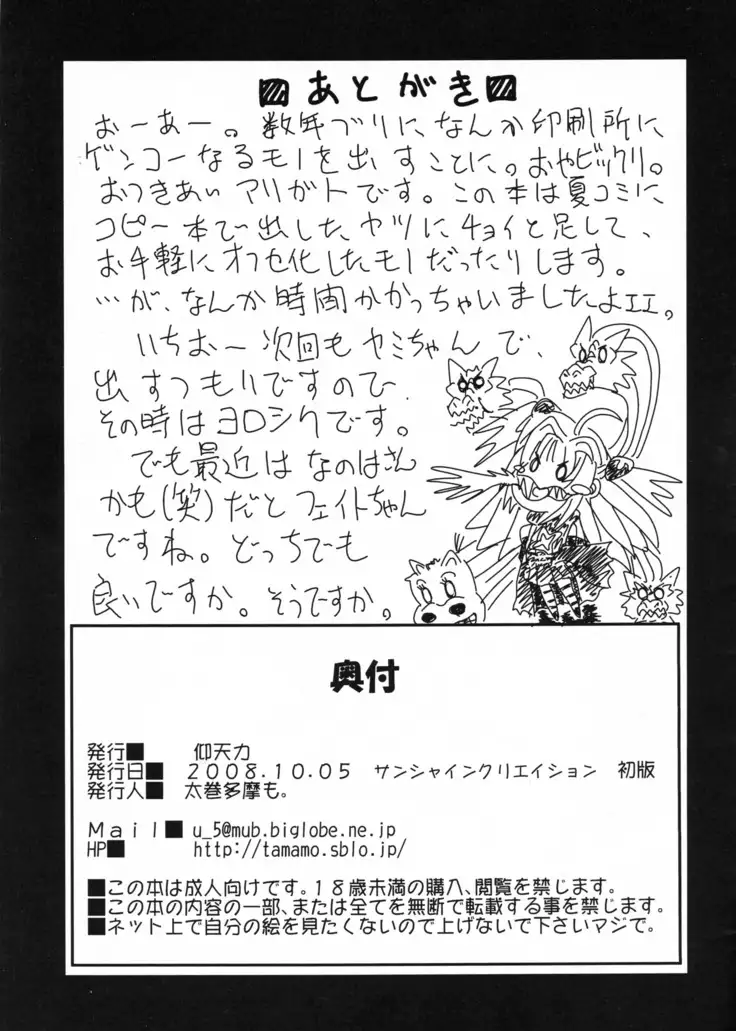 あとがき
おーあー。数年ブリになんか印刷所に
ゲンコーなるモノを出すことに。おやビックリ。
おつきあいアリガトです。この本は夏コミに
コピー本で出した、ヤツにチョイと足して、
お手軽にオフセ化したモノだったりします。
…が、なんか時間かかっちゃいましたよエエ。
いちおー次回もヤミちゃんで、
出すつもりですので
その時はヨロシクです。
でも最近はなのはさん
かも(笑)だとフェイトちゃん
ですね。どっちでも
良いですか。そうですか。
奥付
発行■ 仰天力
発行日■ 2008.10.05 サンシャインクリエイション 初版
発行人■ 太巻多摩も。
Mail■ u_5@mub.biglobe.ne.jp
HP■ http://tamamo.sblo.jp/
■この本は成人向けです。18歳未満の購入、閲覧を禁じます。
■この本の内容の一部、または全てを無断で転載する事を禁じます。
■ネット上で自分の絵を見たくないので上げないで下さいマジで。